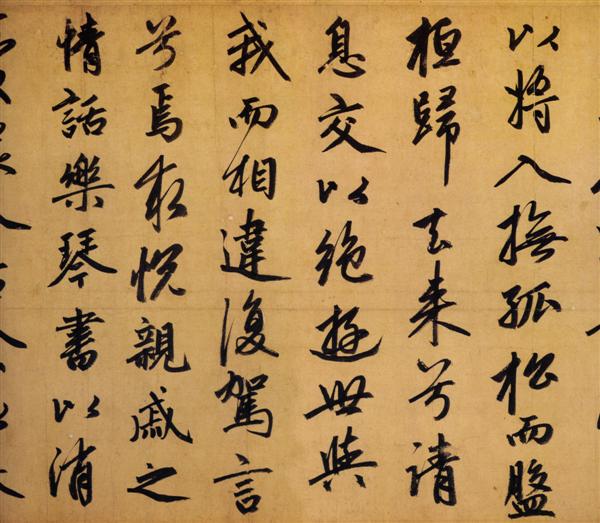 以將入撫孤松而盤
桓歸去来兮請
息交以絶遊世與
我而相違復駕言
兮焉求悅親戚之
情話樂琴書以消